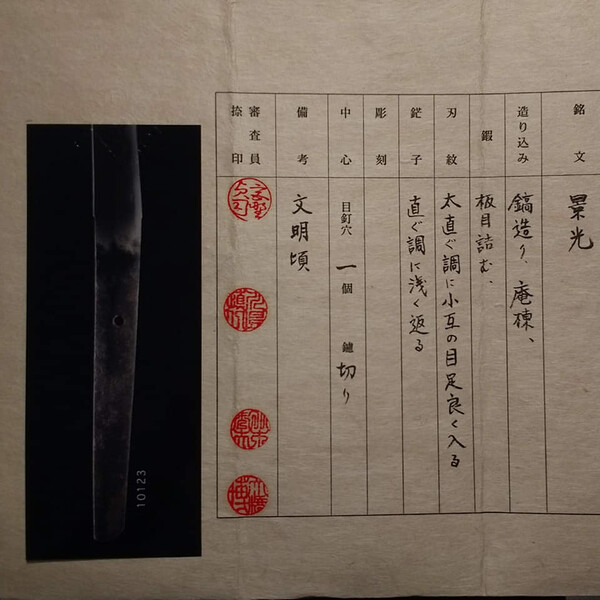 銘文 景光
造り込み 鎬造り、庵棟、
鍜 板目詰む、
刃紋 太直ぐ調に小互の目足良く入る
鋩子 直ぐ調に浅く返る
彫刻
中心 目釘穴 一個 鑢 切り
備考 文明頃
審査員捺印
10123